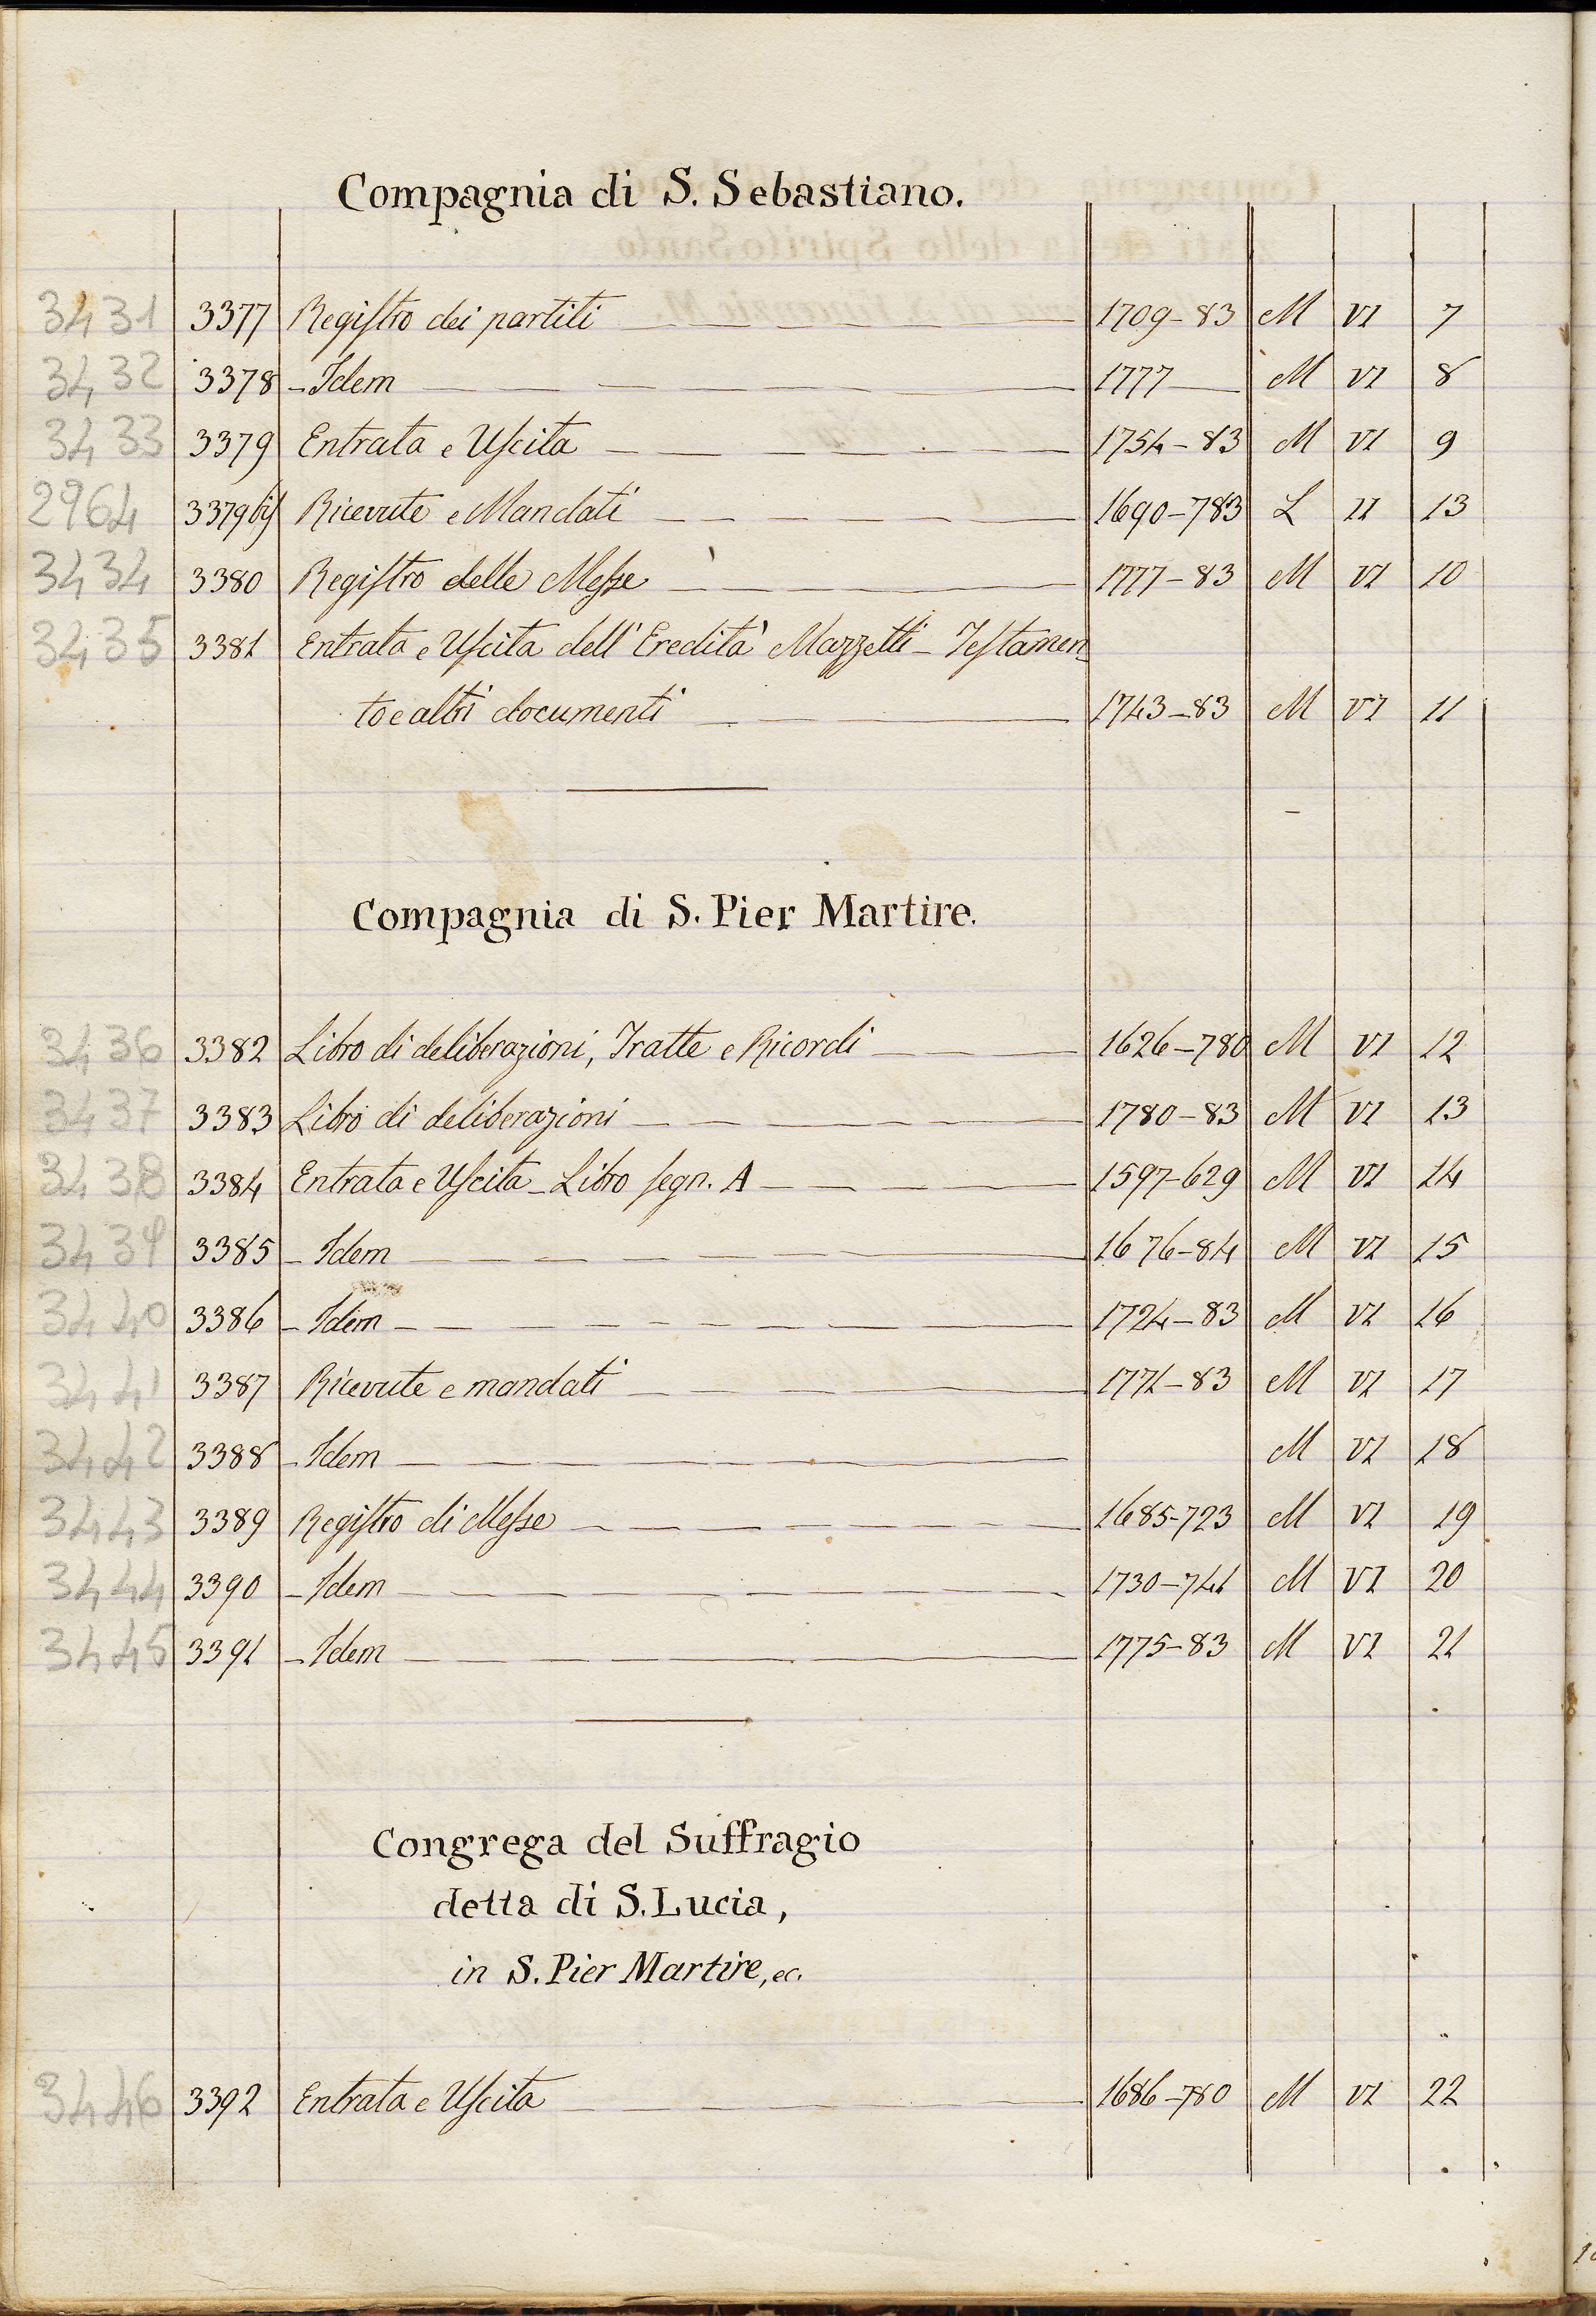 Compagnia di S. Sebastiano.
3431 3377 Registro dei partiti 1709-83 M VI 7
3432 3378 - Idem 1777 M VI 8
3433 3379 Entrata e Uscita 1754-83 M VI 9
2964 3379 bis Ricevute e Mandati 1690-783 L II 13
3434 3380 Registro delle Messe 1777-83 M VI 10
3435 3381 Entrata e Uscita dell'Eredità Mazzetti - Testamen-
to e altri documenti 1743-83 M VI 11
Compagnia di S. Pier Martire.
3436 3382 Libro di deliberazioni, Tratte e Ricordi 1626-780 M VI 12
3437 3383 Libro di deliberazioni 1780-83 M VI 13
3438 3384 Entrata e Uscita - Libro segn. A 1597-629 M VI 14
3439 3385 - Idem 1676-84 M VI 15
3440 3386 - Idem 1724-83 M VI 16
3441 3387 Ricevute e mandati 1771-83 M VI 17
3442 3388 - Idem M VI 18
3443 3389 Registro di Messe 1685-723 M VI 19
3444 3390 - Idem 1730-741 M VI 20
3445 3391 - Idem 1775-83 M VI 21
Congrega del Suffragio
detta di S. Lucia,
in S. Pier Martire, ec.
3446 3392 Entrata e Uscita 1686-780 M VI 22